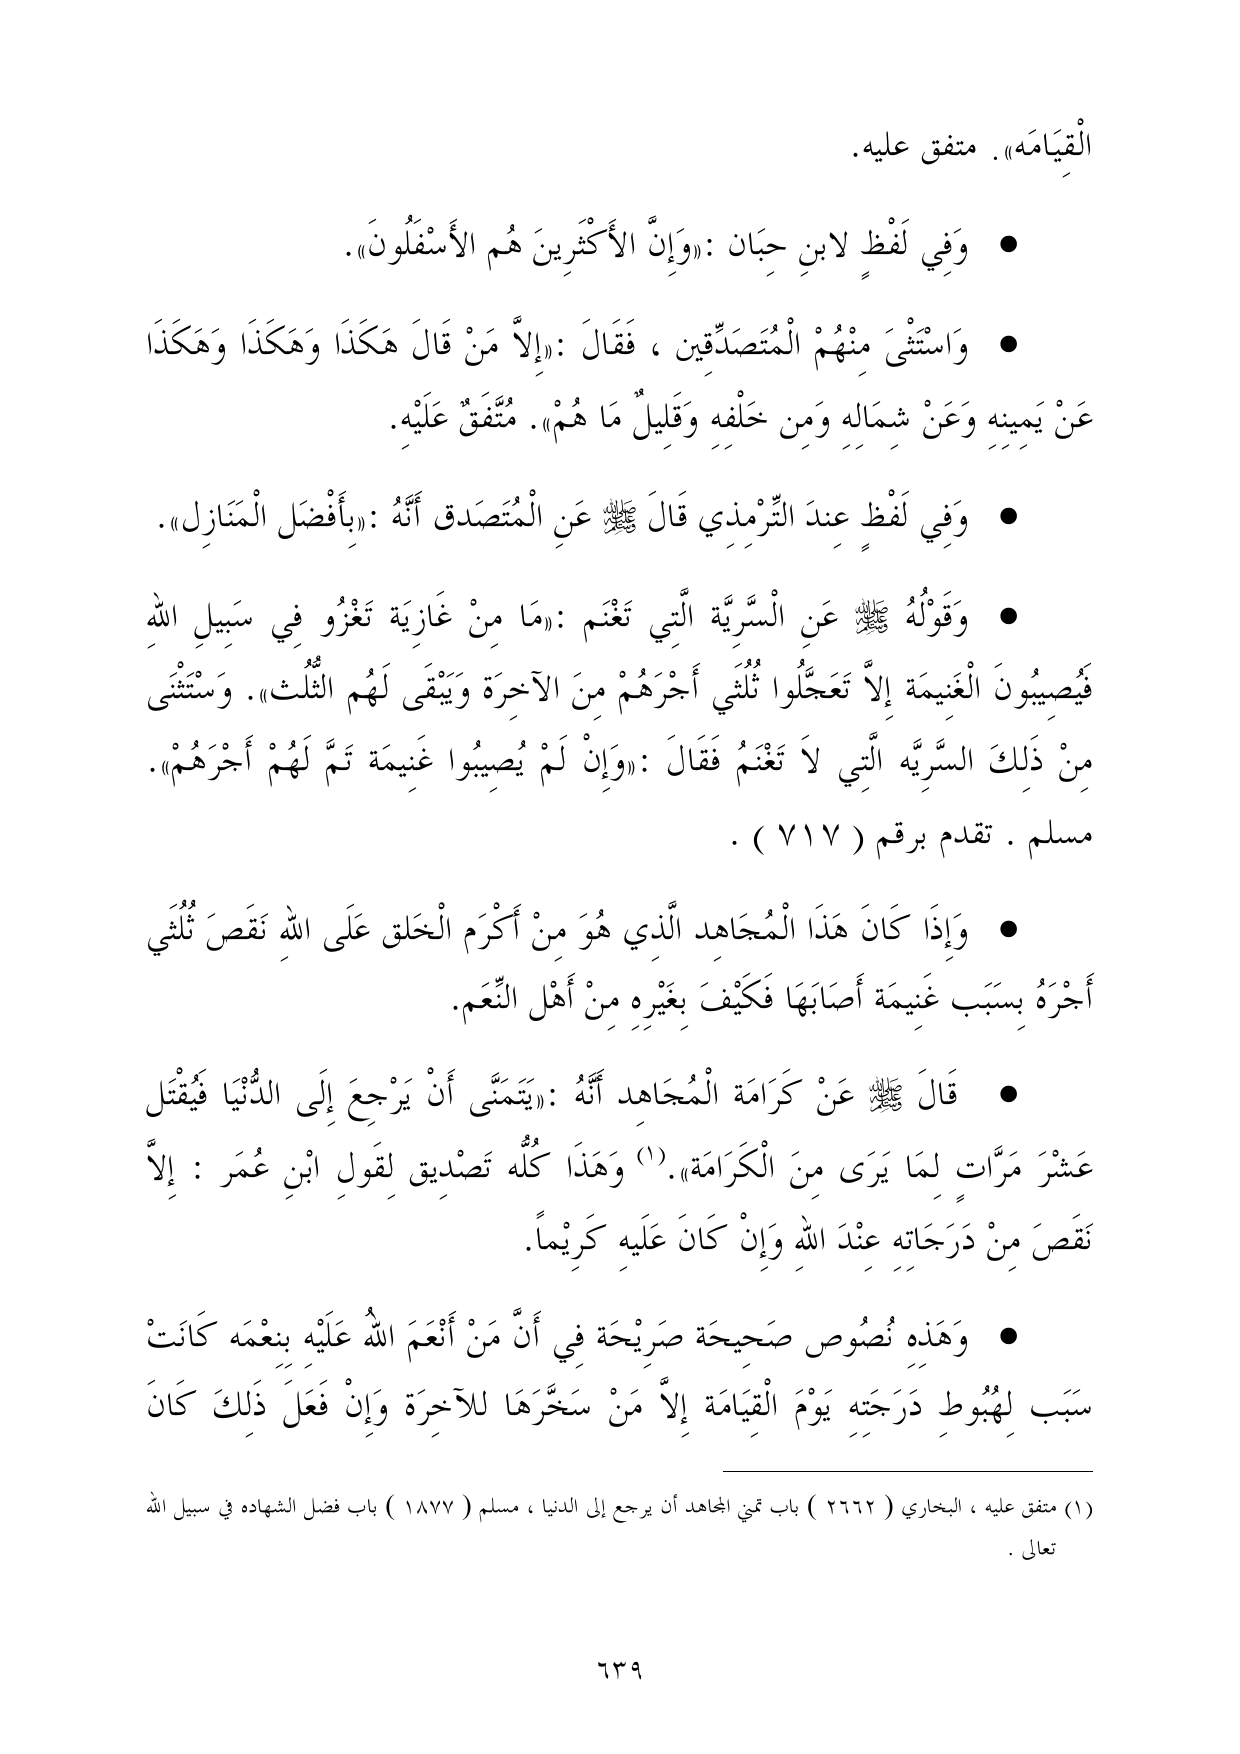 الْقِيَامَه». متفق عليه.
● وَفِي لَفْظٍ لابنِ حِبَان :«وَإِنَّ الأَكْثَرِينَ هُم الأَسْفَلُونَ».
● وَاسْتَثْىَ مِنْهُمْ الْمُتَصَدِّقِين ، فَقَالَ :«إِلاَّ مَنْ قَالَ هَكَذَا وَهَكَذَا وَهَكَذَا
عَنْ يَمِينِهِ وَعَنْ شِمَالِهِ وَمِن خَلْفِهِ وَقَلِيلٌ مَا هُمْ». مُتَّفَقٌ عَلَيْهِ.
● وَفِي لَفْظٍ عِندَ التِّرْمِذِي قَالَ ﷺ عَنِ الْمُتَصَدق أَنَّهُ :«بِأَفْضَل الْمَنَازِل».
● وَقَوْلُهُ ﷺ عَنِ الْسَّرِيَّة الَّتِي تَغْنَم :«مَا مِنْ غَازِيَة تَغْزُو فِي سَبِيلِ اللهِ
فَيُصِيبُونَ الْغَنِيمَة إِلاَّ تَعَجَّلُوا ثُلُثَي أَجْرَهُمْ مِنَ الآخِرَة وَيَبْقَى لَهُم الثُّلُث». وَسْتَثْنَى
مِنْ ذَلِكَ السَّرِيَّه الَّتِي لاَ تَغْنَمُ فَقَالَ :«وَإِنْ لَمْ يُصِيبُوا غَنِيمَة تَمَّ لَهُمْ أَجْرَهُمْ».
مسلم . تقدم برقم ( ٧١٧ ) .
● وَإِذَا كَانَ هَذَا الْمُجَاهِد الَّذِي هُوَ مِنْ أَكْرَم الْخَلق عَلَى اللهِ نَقَصَ ثُلُثَي
أَجْرَهُ بِسَبَب غَنِيمَة أَصَابَهَا فَكَيْفَ بِغَيْرِهِ مِنْ أَهْل النِّعَم.
● قَالَ ﷺ عَنْ كَرَامَة الْمُجَاهِد أَنَّهُ :«يَتَمَنَّى أَنْ يَرْجِعَ إِلَى الدُّنْيَا فَيُقْتَل
عَشْرَ مَرَّاتٍ لِمَا يَرَى مِنَ الْكَرَامَة».(١) وَهَذَا كُلُّه تَصْدِيق لِقَولِ ابْنِ عُمَر : إِلاَّ
نَقَصَ مِنْ دَرَجَاتِهِ عِنْدَ اللهِ وَإِنْ كَانَ عَلَيهِ كَرِيْماً.
● وَهَذِهِ نُصُوص صَحِيحَة صَرِيْحَة فِي أَنَّ مَنْ أَنْعَمَ اللهُ عَلَيْهِ بِنِعْمَه كَانَتْ
سَبَب لِهُبُوطِ دَرَجَتِهِ يَوْمَ الْقِيَامَة إِلاَّ مَنْ سَخَّرَهَا للآخِرَة وَإِنْ فَعَلَ ذَلِكَ كَانَ
(١) متفق عليه ، البخاري ( ٢٦٦٢ ) باب تمني المجاهد أن يرجع إلى الدنيا ، مسلم ( ١٨٧٧ ) باب فضل الشهاده في سبيل الله
تعالى .
٦٣٩